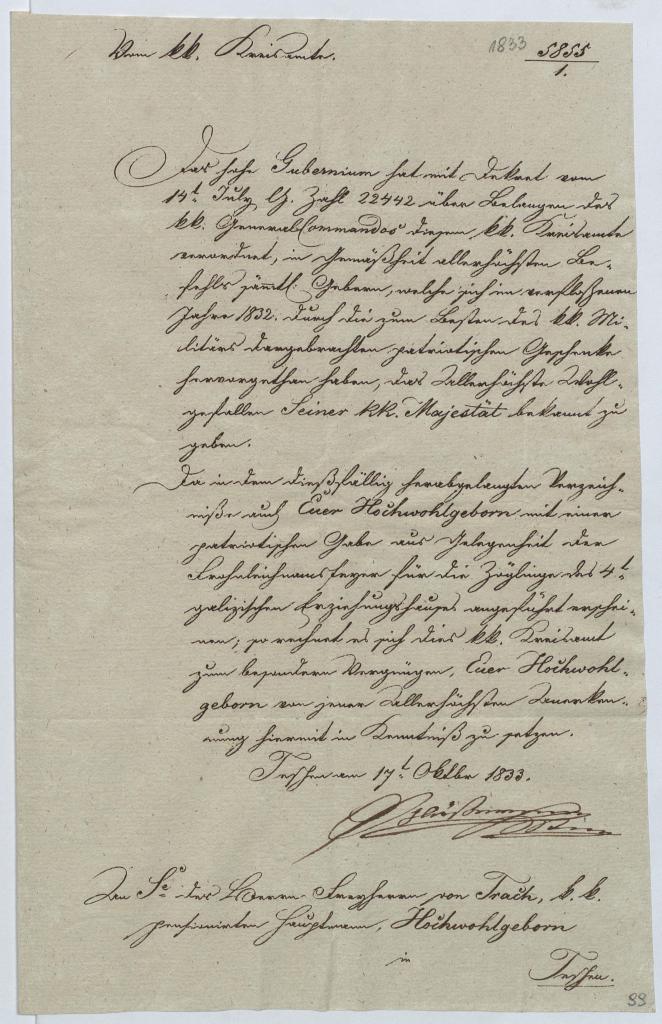 Vom kk. Kreisamte.
1833
5855
1.
Das hohe Gubernium hat mit Dekret vom
14t July l. J. Zahl 22442 über Belangen des
kk. General Commandos diesem kk. Kreisamte
verordnet, in Gemäßheit allerhöchsten Be-
fehls sämtl: Gebern, welche sich im verfloßenen
Jahre 1832. durch die zum Besten des kk. Mi-
litärs dargebrachten patriotischen Geschenke
hervorgethan haben, das Allerhöchste Wohl-
gefallen Seiner kk. Majestät bekannt zu
geben.
Da in dem dießfällig herabgelangten Verzeich-
niße auch Euer Hochwohlgeborn mit einer
patriotischen Gabe aus Gelegenheit der
Frohnleichnamsfeyer für die Zöglinge des 4t
galizischen Erziehungshauses angeführt erschei-
nen; so rechnet es sich dies kk. Kreisamt
zum besondern Vergnügen, Euer Hochwohl-
geborn von jener Allerhöchsten Anerken-
nung hiermit in Kenntniß zu setzen.
Teschen am 17t Oktbr 1833.
An Se des Herrn Freyherrn von Trach, k. k.
pensionirten Hauptmann, Hochwohlgeborn
in
Teschen.
99